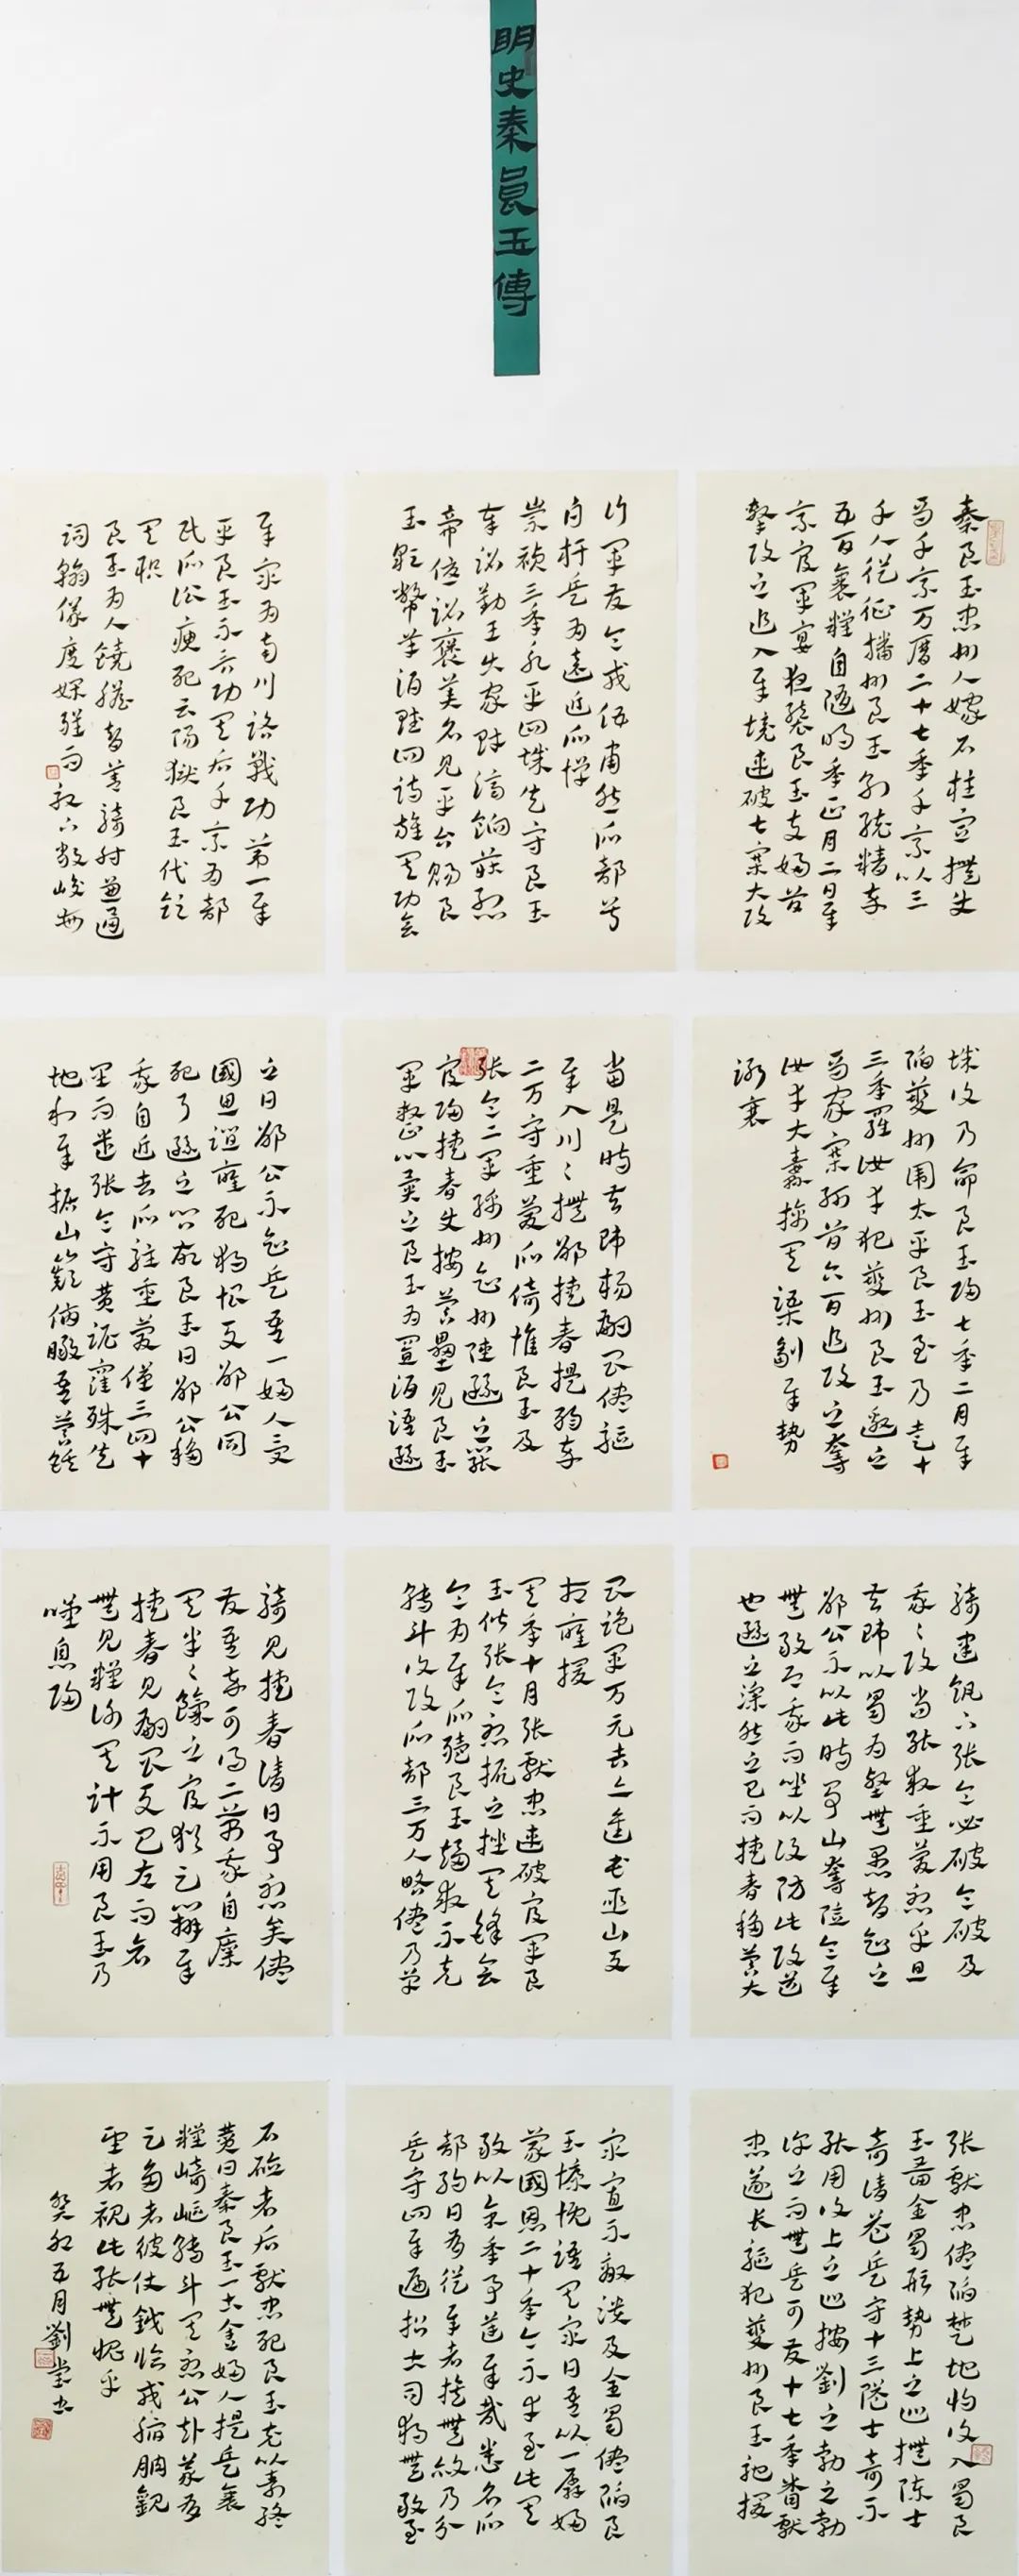 明史秦良玉傳
秦良玉忠州人嫁石柱宣撫史
馬千乘万曆二十七年千乘以三
千人從征播州良玉别統精卒
五百裹糧自隨明年正月二日賊
乘官軍宴夜襲良玉夫婦首
擊敗之追入賊境連破七寨大敗
行軍发令戎伍肅然所部号
白杆兵为遠近所惮
崇禎三年永平四城失守良玉
奉詔勤王出家財濟餉莊烈
帝優詔褒美召見平台賜良
玉彩幣羊酒賦四詩旌其功会
賊众为南川路戰功第一賊
平良玉不言功其后千乘为部
民所讼瘐死云阳獄良玉代領
其职
良玉为人饒膽智善騎射兼通
詞翰儀度嫻雅而馭下嚴峻每
城復乃命良玉歸七年二月賊
陷夔州围太平良玉至乃走十
三年羅汝才犯夔州良玉邀之
馬家寨斬首六百追敗之奪
汝才大纛擒其渠副賊势
漸衰
當是時督师楊嗣昌儘驅
賊入川川撫邵捷春提弱卒
二万守重慶所倚惟良玉及
张令二軍綿州知州陸遜之罷
官歸捷春史按营壘見良玉
軍整心異之良玉为置酒語遜
之曰邵公不知兵吾一婦人受
國恩誼應死獨恨与邵公同
死耳遜之问故良玉曰邵公移
我自近去所駐重慶僅三四十
里而遣张令守黄泥窪殊失
地利賊据山巔俯瞰吾营鐵
騎建瓴下张令必破令破及
我我敗尚能救重慶急乎且
督師以蜀为壑無愚智知之
邵公不以此時爭山奪险令賊
無敢即我而坐以设防此敗道
也遜之深然之已而捷春移营大
昌詭軍万元吉亦進屯巫山与
相應援
其年十月张獻忠連破官軍良
玉偕张令急扼之挫其鋒会
令为賊所殪良玉趨救不克
转斗復敗所部三万人略儘乃单
騎見捷春请曰事急矣儘
发吾卒可得二萬我自廩
其半半餼之官犹足辦賊
捷春見嗣昌与己左而倉
無見糧谢其計不用良玉乃
嘆息歸
张獻忠儘陷楚地将復入蜀良
玉圖全蜀形势上之巡撫陈士
奇请益兵守十三隘士奇不
能用復上之巡按劉之勃之勃
许之而無兵可发十七年春獻
忠遂长驅犯夔州良玉馳援
众寡不敵潰及全蜀儘陷良
玉慷慨語其众曰吾以一孱婦
蒙國恩二十年今不幸至此其
敢以余年事逆賊哉悉召所
部约曰有從賊者族無赦乃分
兵守四年遍招土司獨無敢至
石砫者后獻忠死良玉竟以壽終
贊曰秦良玉一土舍婦人提兵裹
糧崎嶇转斗其急公赴義有
足多者彼仗鉞临戎縮朒觀
望者視此能無愧乎
癸卯五月劉堂书